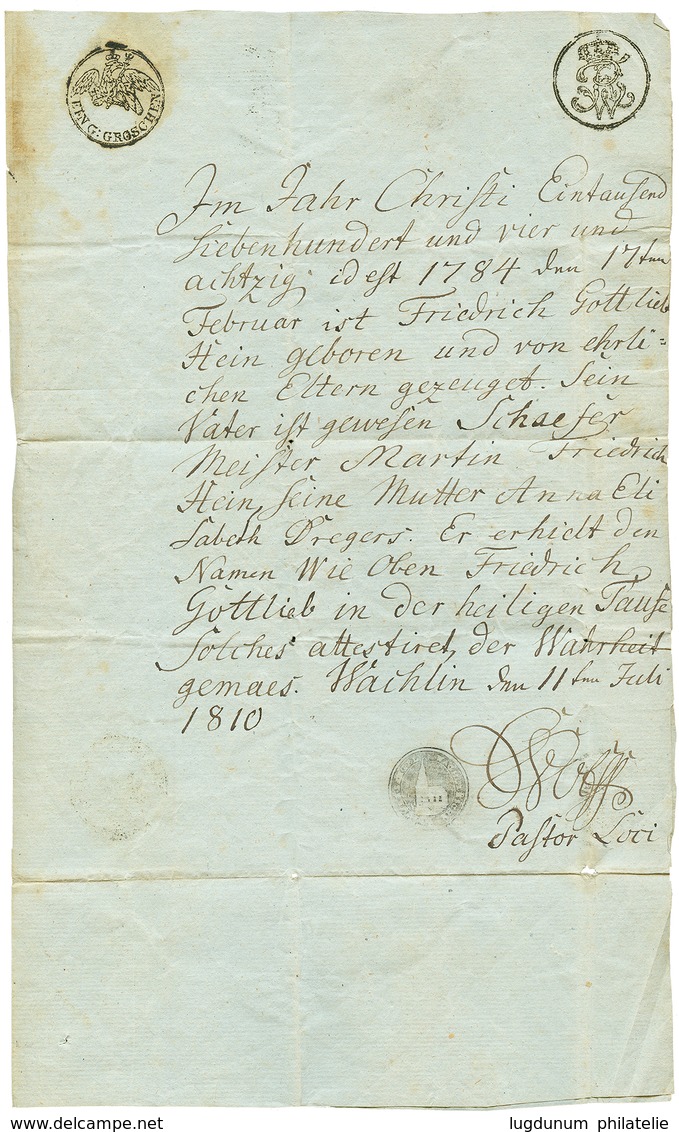 EIN G: GROSCHEN
Im Jahr Christi Eintausend
Siebenhundert und vier und
achtzig id est 1784 den 17ten
Februar ist Friedrich Gottlieb
Hein geboren und von ehrli=
chen Eltern gezeuget. Sein
Vater ist gewesen Schaefer
Meister Martin Friedrich
Hein, seine Mutter Anna Eli
sabeth Dregers. Er erhielt den
Namen Wie Oben Friedrich
Gottlieb in der heiligen Taufe
Solches attestiret, der Wahrheit
gemaes. Wachlin den 11ten Juli
1810
Pastor Loci
www.delcampe.net
lugdunum philatelie